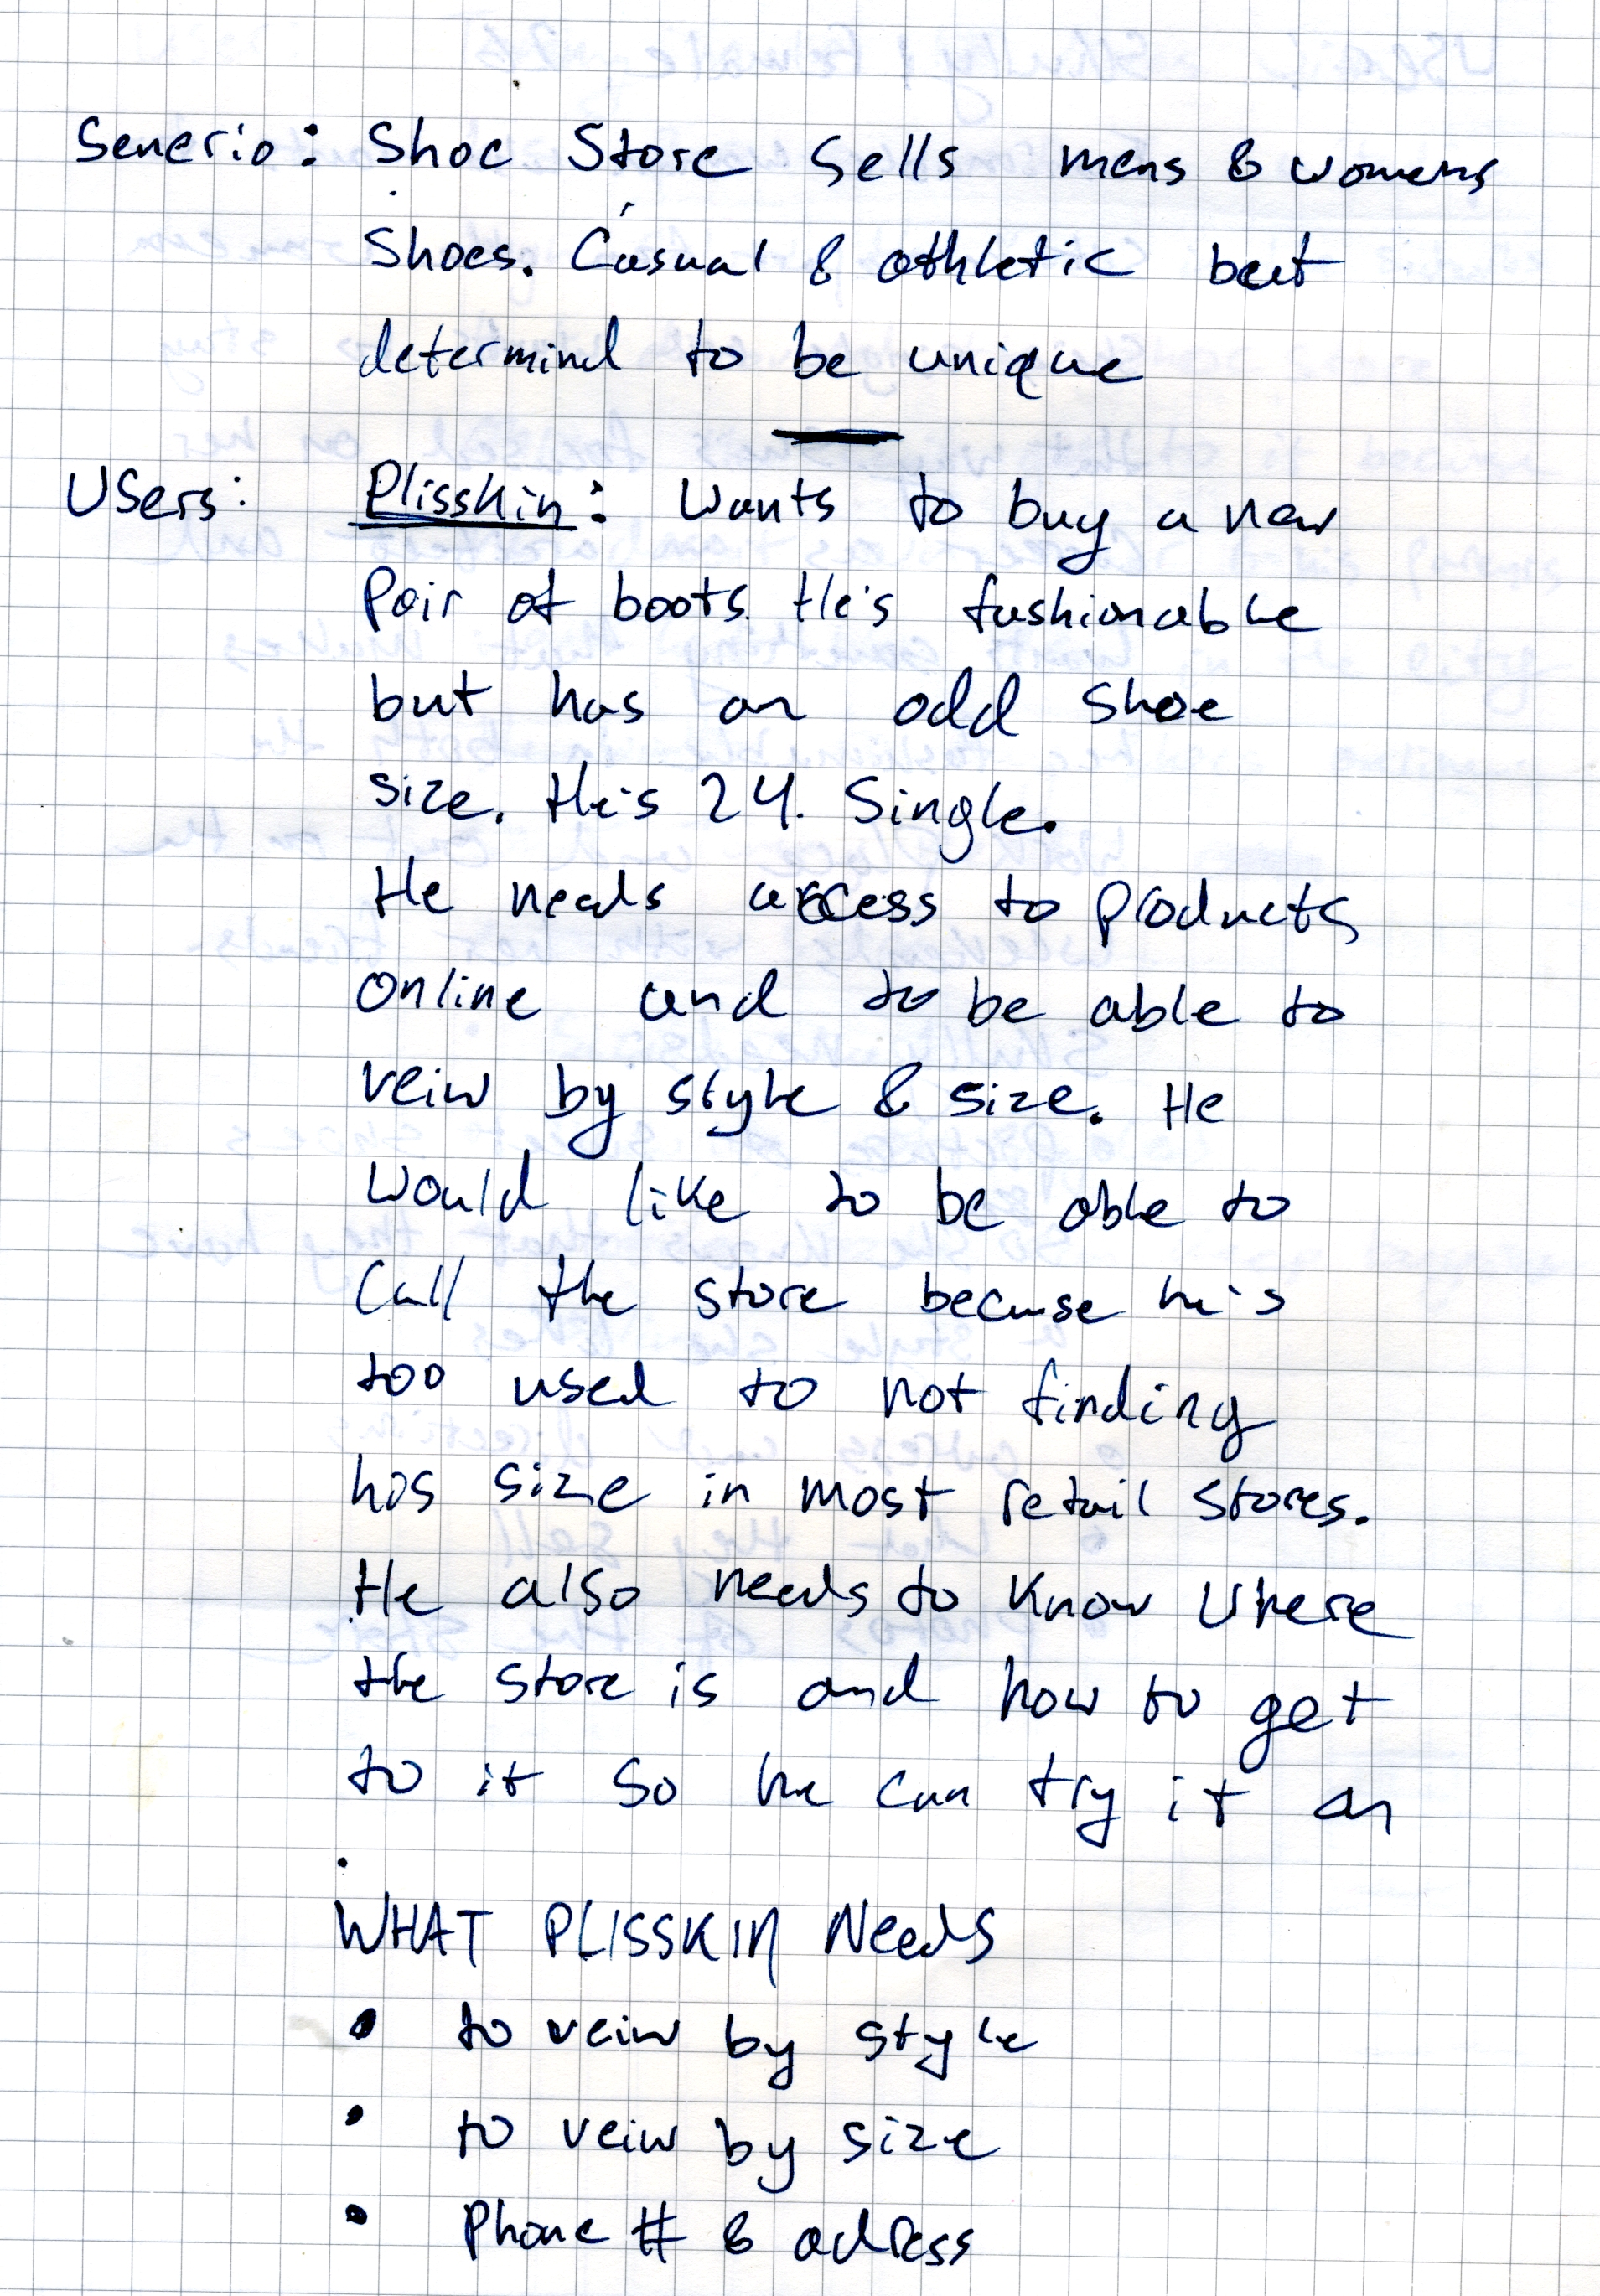 Senerio: Shoe Store Sells mens & womens
Shoes. Casual & athletic but
determind to be unique
Users: Plisskin: Wants to buy a new
Pair of boots. He's fashionable
but has an odd shoe
size. He's 24. Single.
He needs access to products
online and to be able to
veiw by style & size. He
would like to be able to
Call the store because he's
too used to not finding
his size in most retail stores.
He also needs to know where
the store is and how to get
to it so he can try it on
WHAT PLISSKIN Needs
• to veiw by style
• to veiw by size
• Phone # & adress